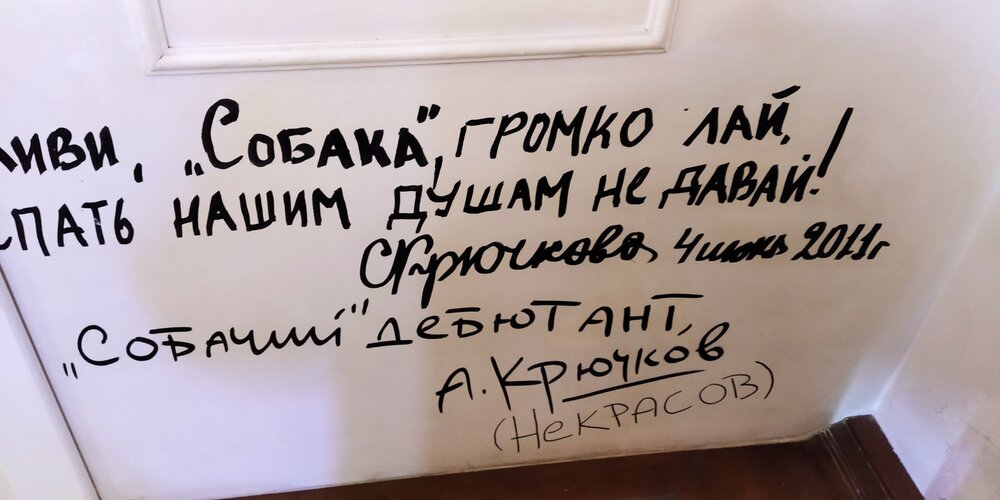 ЖИВИ, „СОБАКА“, ГРОМКО ЛАЙ,
СПАТЬ НАШИМ ДУШАМ НЕ ДАВАЙ!
СКрючкова 4 июнь 2011г
„СОБАЧИЙ“ ДЕБЮТАНТ,
А. КРЮЧКОВ
(НеКРАСОВ)